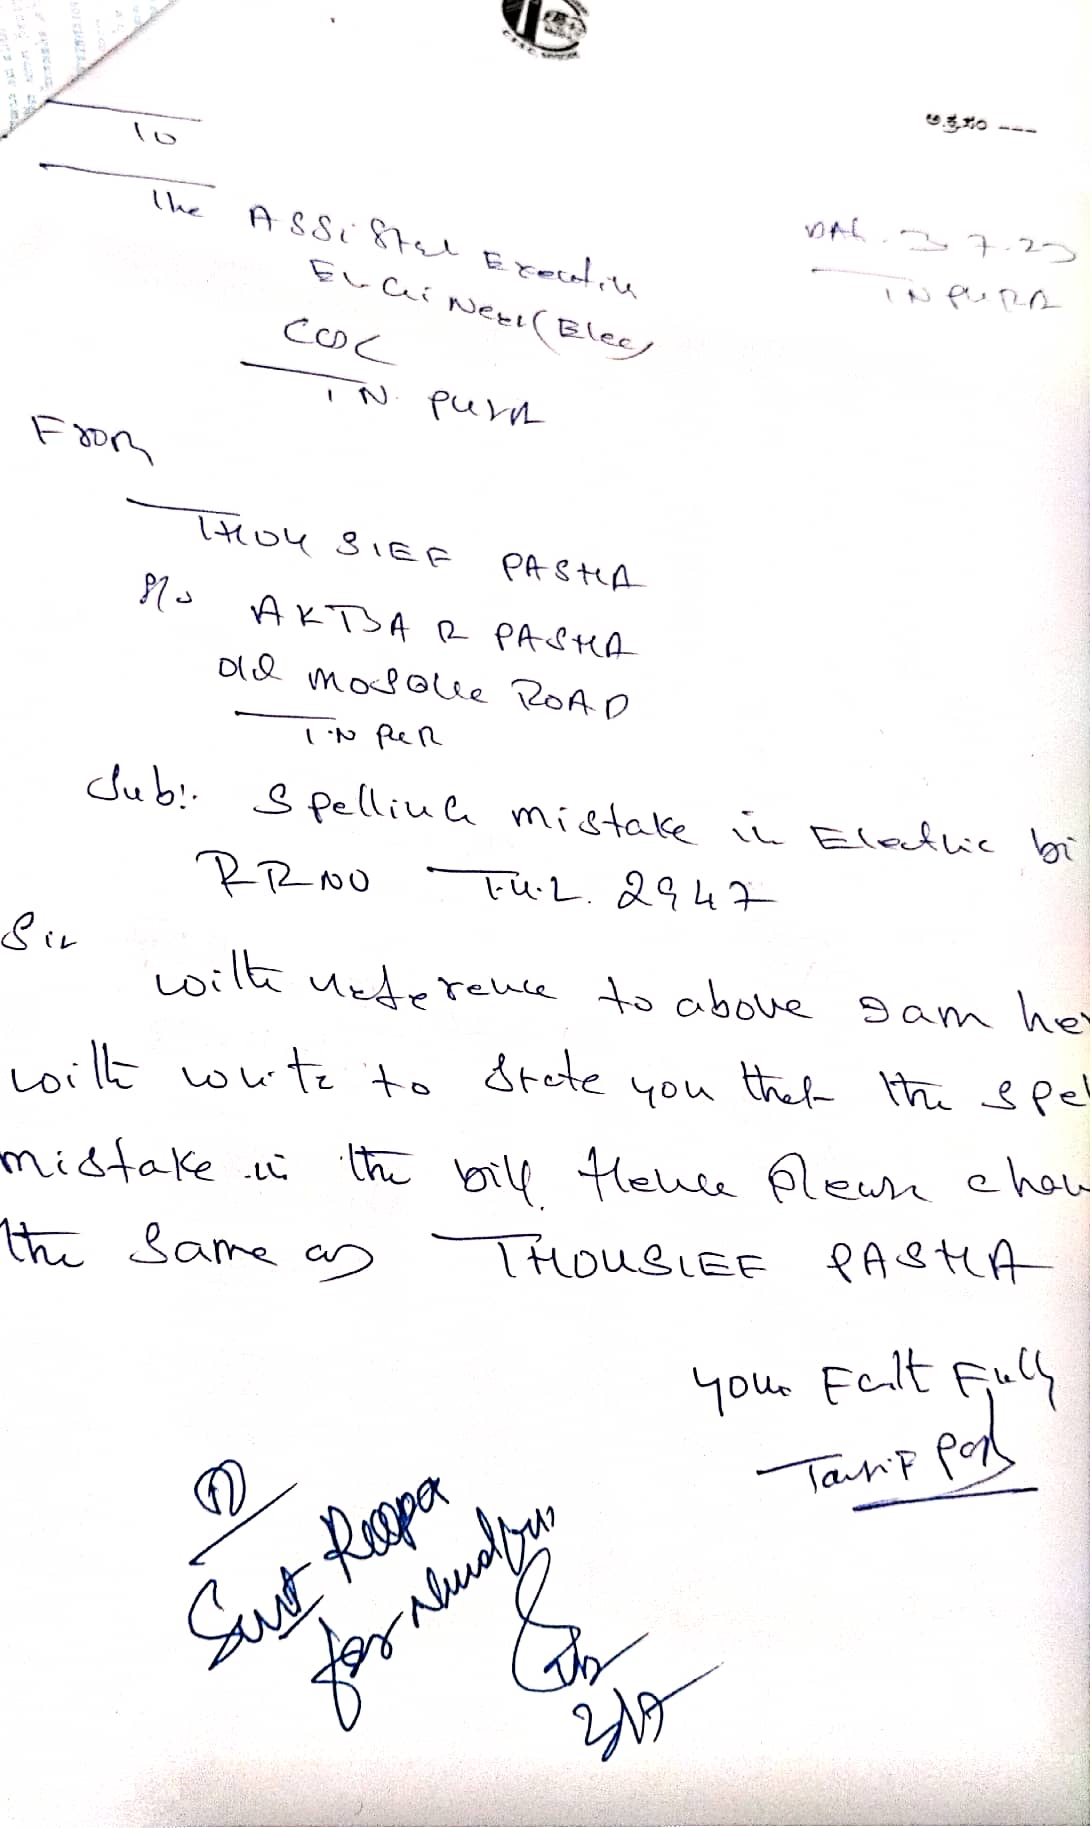 ಅ.ಕ್ರ.ಸಂ ---
To
The ASSiStal Executive
Date. 3.7.23
T N PURA
EnGiNeer (Elec)
T N. PURA
From
THOUSIEF PASHA
S/o AKTBAR PASHA
old MOSQUe ROAD
T.N PUR
Sub:. SpellinG mistake in Electric bi
RR NO T.U.L. 2947
Sir
with reference to above I am her
with write to state you that the spel
mistake in the bill. Hence Please chan
the Same as THOUSIEF PASHA
your FaitFully
Smt Roopa
for
3/7